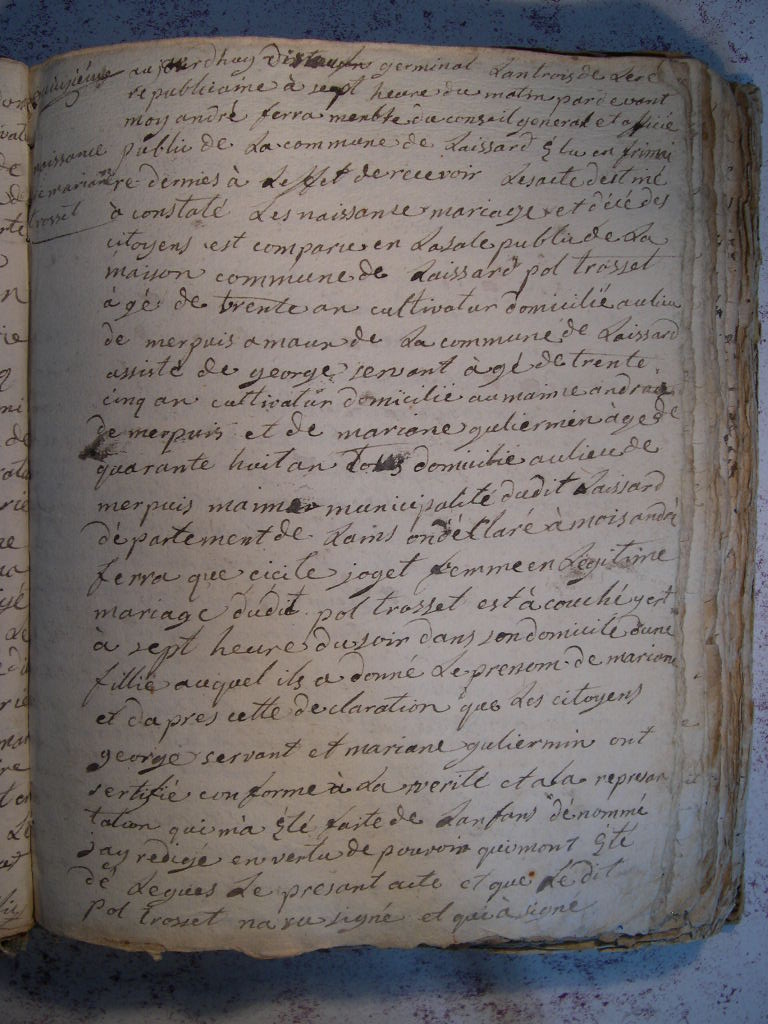 naissance
de mariane
trosset
aujourdhuy germinal Lantrois de Leré
republicaine à sept heure du matin pardevant
moy andré ferra menbre du conseil general et officié
public de La commune de Laissard Elu en frimai
re dernies à Leffet de recevoir Les acte destiné
à constaté Les naissanse mariage et décé des
citoyens est comparu en La sale public de La
maison commune de Laissard pol trosset
àgé de trente an cultivatur domicilié au lieu
de merpuis amaux de La commune de Laissard
assisté de george servant àgé de trente
cinq an cultivatur domicilié au maime andrai
de merpuis et de mariane guliermin àge de
quarante huit an tous domicilie au lieu de
merpuis maime municipalité dudit Laissard
département de Lains on déClaré à mois andré
ferra que cicile joget femme en Legitime
mariage dudit pol trosset est àcouché yert
à sept heure du soir dans son domicile dune
fillie auquel ils a donné Le prenom de mariane
et dapres cette declaration que Les citoyens
george servant et mariane guliermin ont
sertifié conforme à La verité et a la represan
tation qui m'a Eté faite de Lanfans dénommé
jay redigé en vertu de pouvoir qui mont Eté
dé Legues Le presant acte et que Le dit
pol trosset na su signé et qui à signe